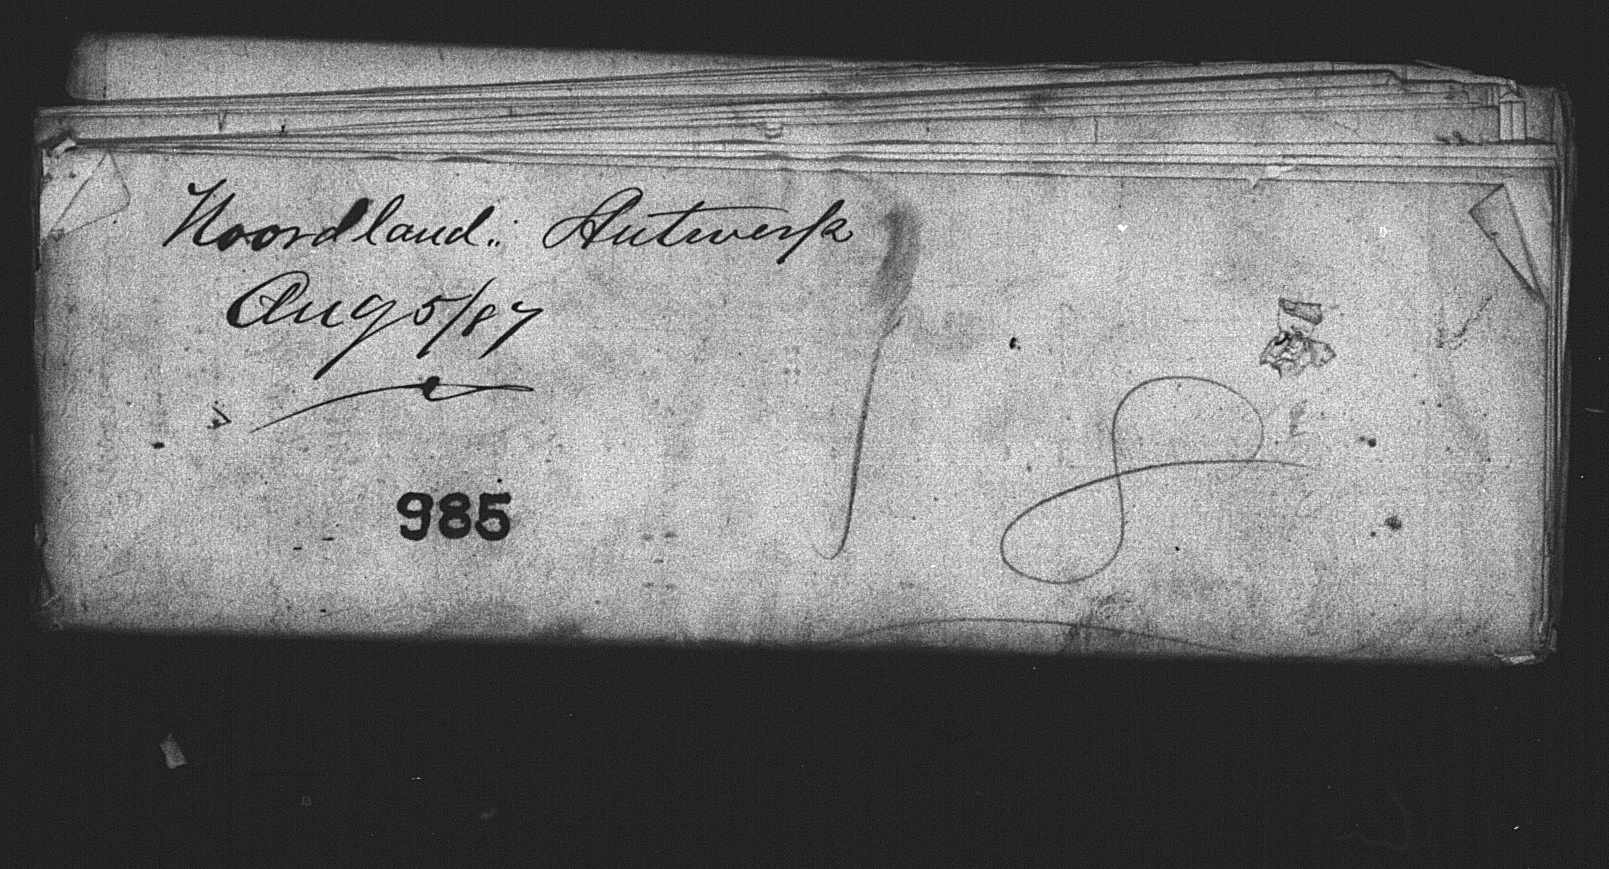 Noordland: Antwerp
Aug 5/87
985
8